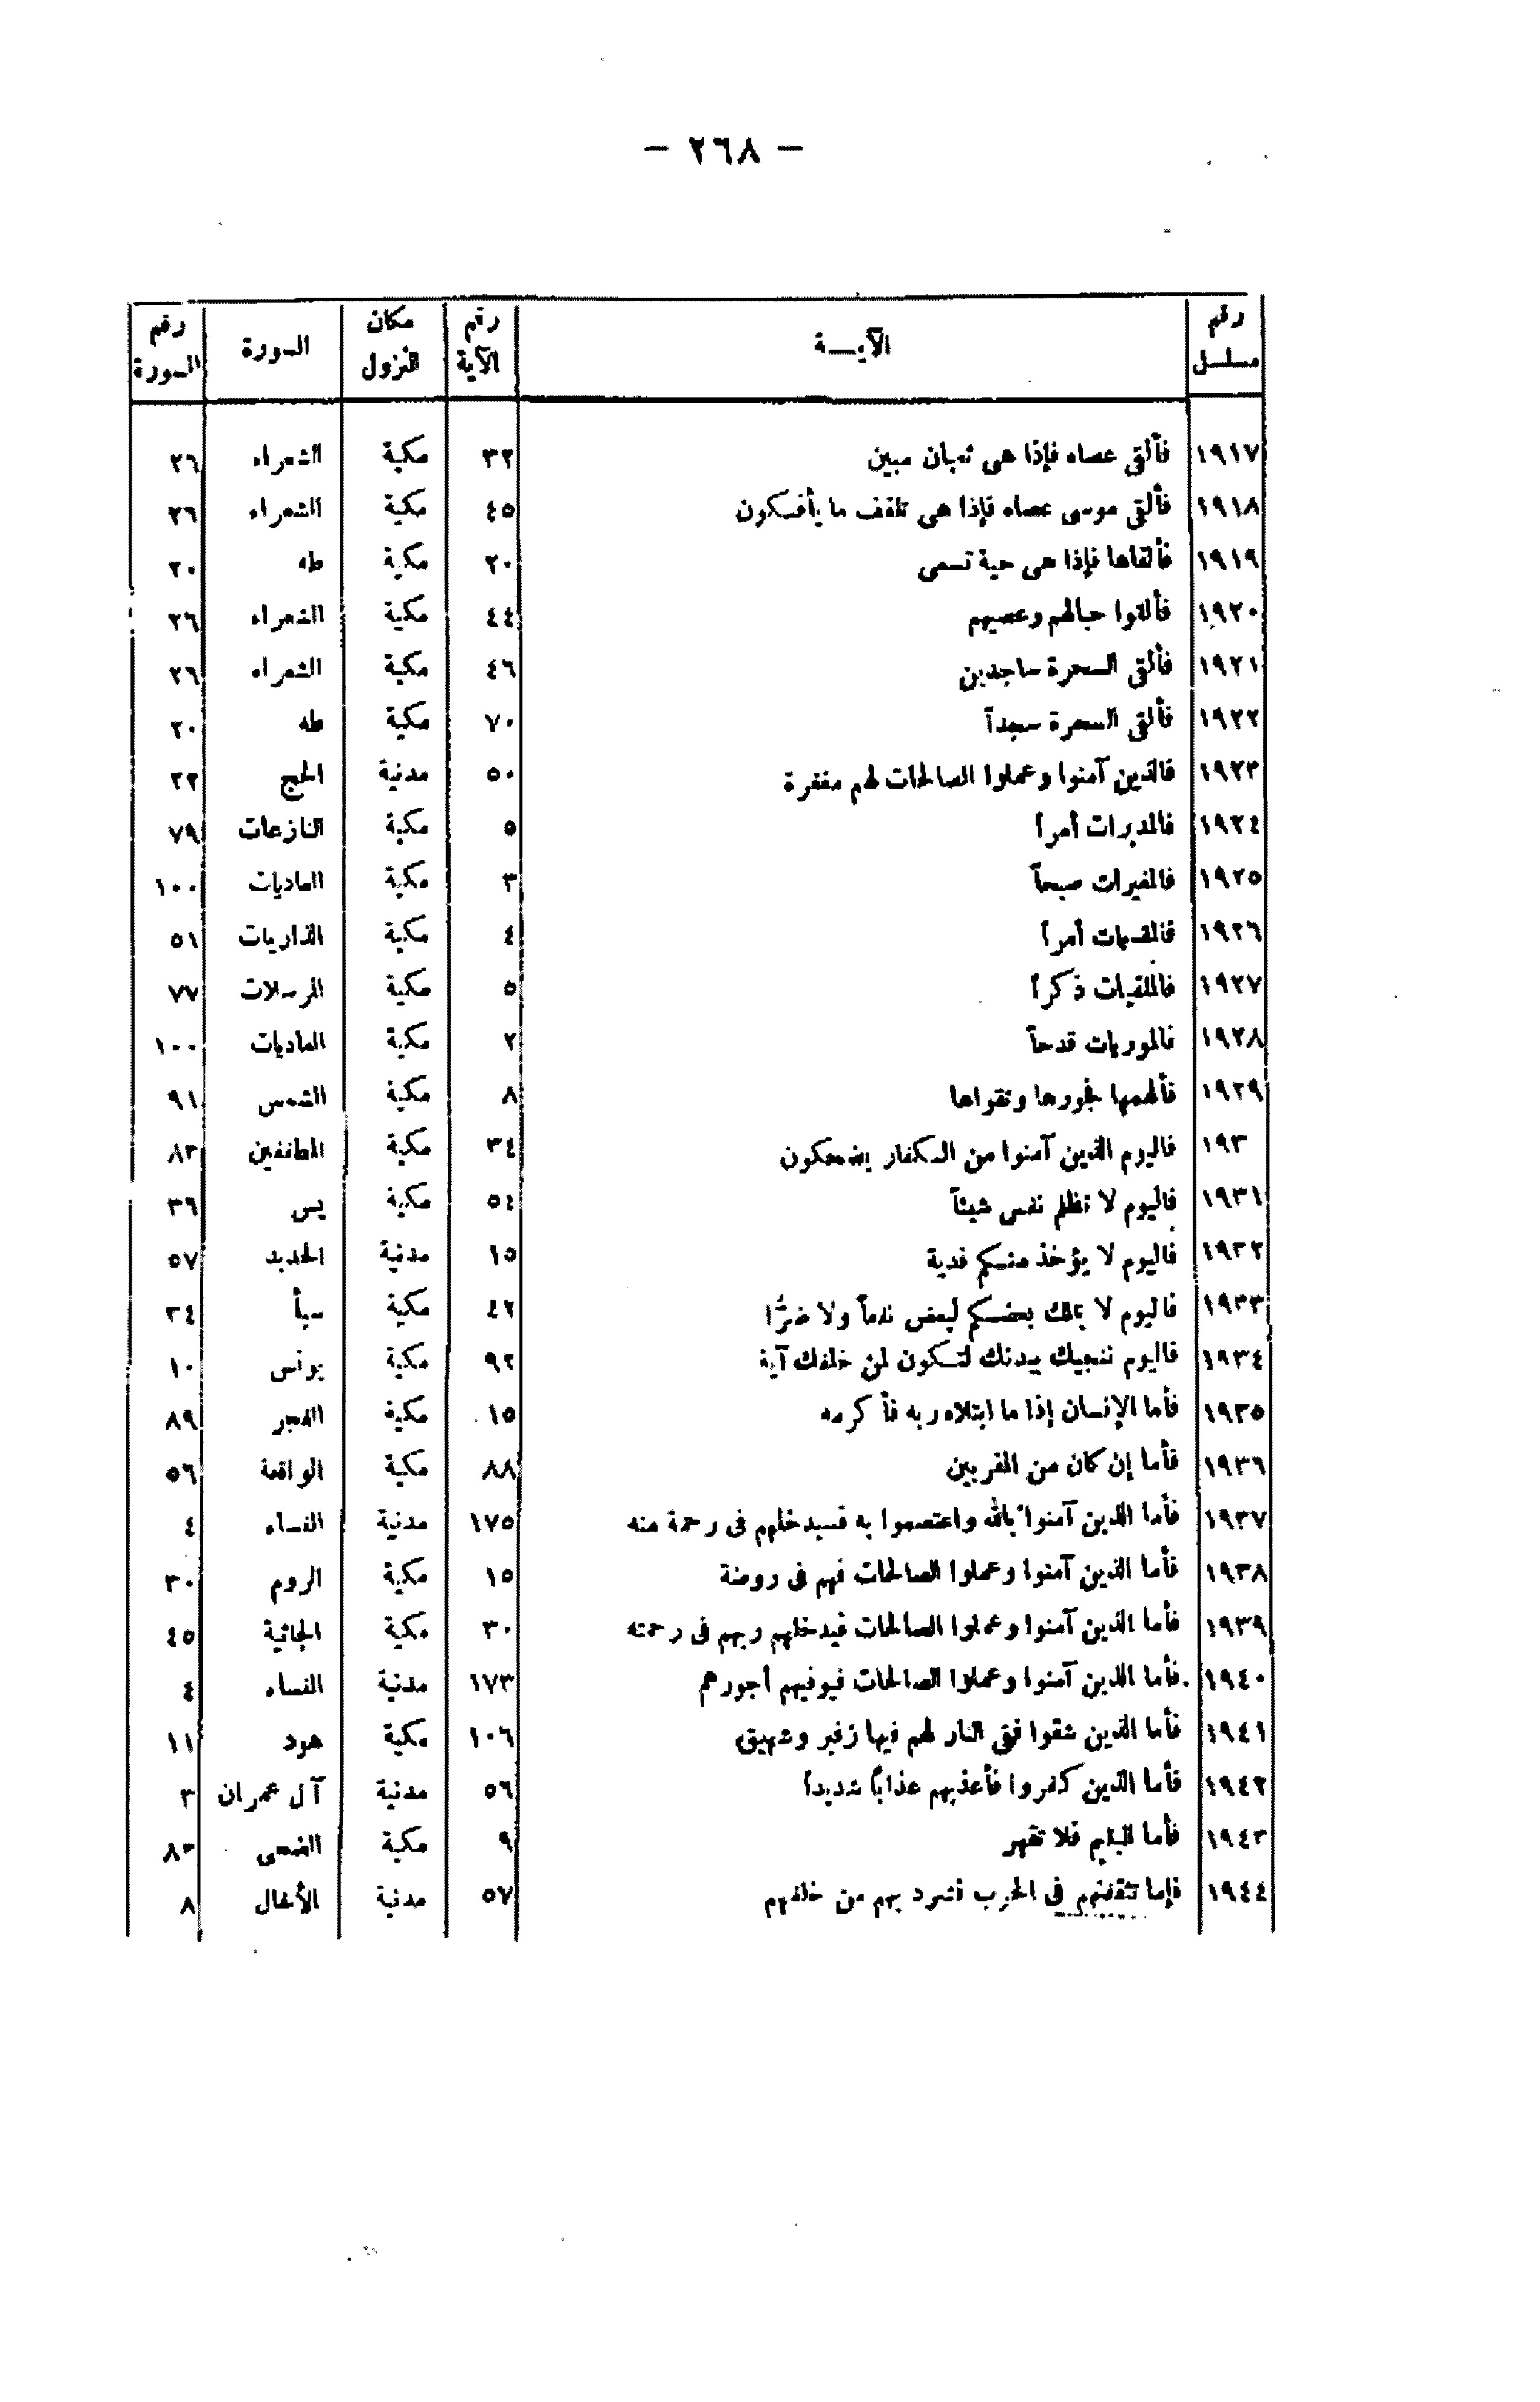 — ٢٦٨ —
رقم مسلسل الآيـــة رقم الآية مكان النزول السورة رقم السورة
١٩١٧ فألقى عصاه فإذا هى ثعبان مبين ٣٢ مكية الشعراء ٢٦
١٩١٨ فألقى موسى عصاه فإذا هى تلقف ما يأفكون ٤٥ مكية الشعراء ٢٦
١٩١٩ فألقاها فإذا هى حية تسعى ٢٠ مكية طه ٢٠
١٩٢٠ فألقوا حبالهم وعصيهم ٤٤ مكية الشعراء ٢٦
١٩٢١ فألقى السحرة ساجدين ٤٦ مكية الشعراء ٢٦
١٩٢٢ فألقى السحرة سجداً ٧٠ مكية طه ٢٠
١٩٢٣ فالذين آمنوا وعملوا الصالحات لهم مغفرة ٥٠ مدنية الحج ٢٢
١٩٢٤ فالمدبرات أمراً ٥ مكية النازعات ٧٩
١٩٢٥ فالمغيرات صبحاً ٣ مكية العاديات ١٠٠
١٩٢٦ فالمقسمات أمراً ٤ مكية الذاريات ٥١
١٩٢٧ فالملقيات ذكراً ٥ مكية المرسلات ٧٧
١٩٢٨ فالموريات قدحاً ٢ مكية العاديات ١٠٠
١٩٢٩ فألهمها فجورها وتقواها ٨ مكية الشمس ٩١
١٩٣ فاليوم الذين آمنوا من الكفار يضحكون ٣٤ مكية المطففين ٨٣
١٩٣١ فاليوم لا تظلم نفس شيئاً ٥٤ مكية يس ٣٦
١٩٣٢ فاليوم لا يؤخذ منكم فدية ١٥ مدنية الحديد ٥٧
١٩٣٣ فاليوم لا يملك بعضكم لبعض نفعاً ولا ضرًّا ٤٢ مكية سبأ ٣٤
١٩٣٤ فاليوم ننجيك ببدنك لتكون لمن خلفك آية ٩٢ مكية يونس ١٠
١٩٣٥ فأما الإنسان إذا ما ابتلاه ربه فأكرمه ١٥ مكية الفجر ٨٩
١٩٣٦ فأما إن كان من المقربين ٨٨ مكية الواقعة ٥٦
١٩٣٧ فأما الذين آمنوا بالله واعتصموا به فسيدخلهم فى رحمة منه ١٧٥ مدنية النساء ٤
١٩٣٨ فأما الذين آمنوا وعملوا الصالحات فهم فى روضة ١٥ مكية الروم ٣٠
١٩٣٩ فأما الذين آمنوا وعملوا الصالحات فيدخلهم ربهم فى رحمته ٣٠ مكية الجاثية ٤٥
١٩٤٠ فأما الذين آمنوا وعملوا الصالحات فيوفيهم أجورهم ١٧٣ مدنية النساء ٤
١٩٤١ فأما الذين شقوا ففى النار لهم فيها زفير وشهيق ١٠٦ مكية هود ١١
١٩٤٢ فأما الذين كفروا فأعذبهم عذابًا شديداً ٥٦ مدنية آل عمران ٣
١٩٤٣ فأما اليتيم فلا تقهر ٩ مكية الضحى ٨٣
١٩٤٤ فإما تثقفنهم فى الحرب فشرد بهم من خلفهم ٥٧ مدنية الأنفال ٨